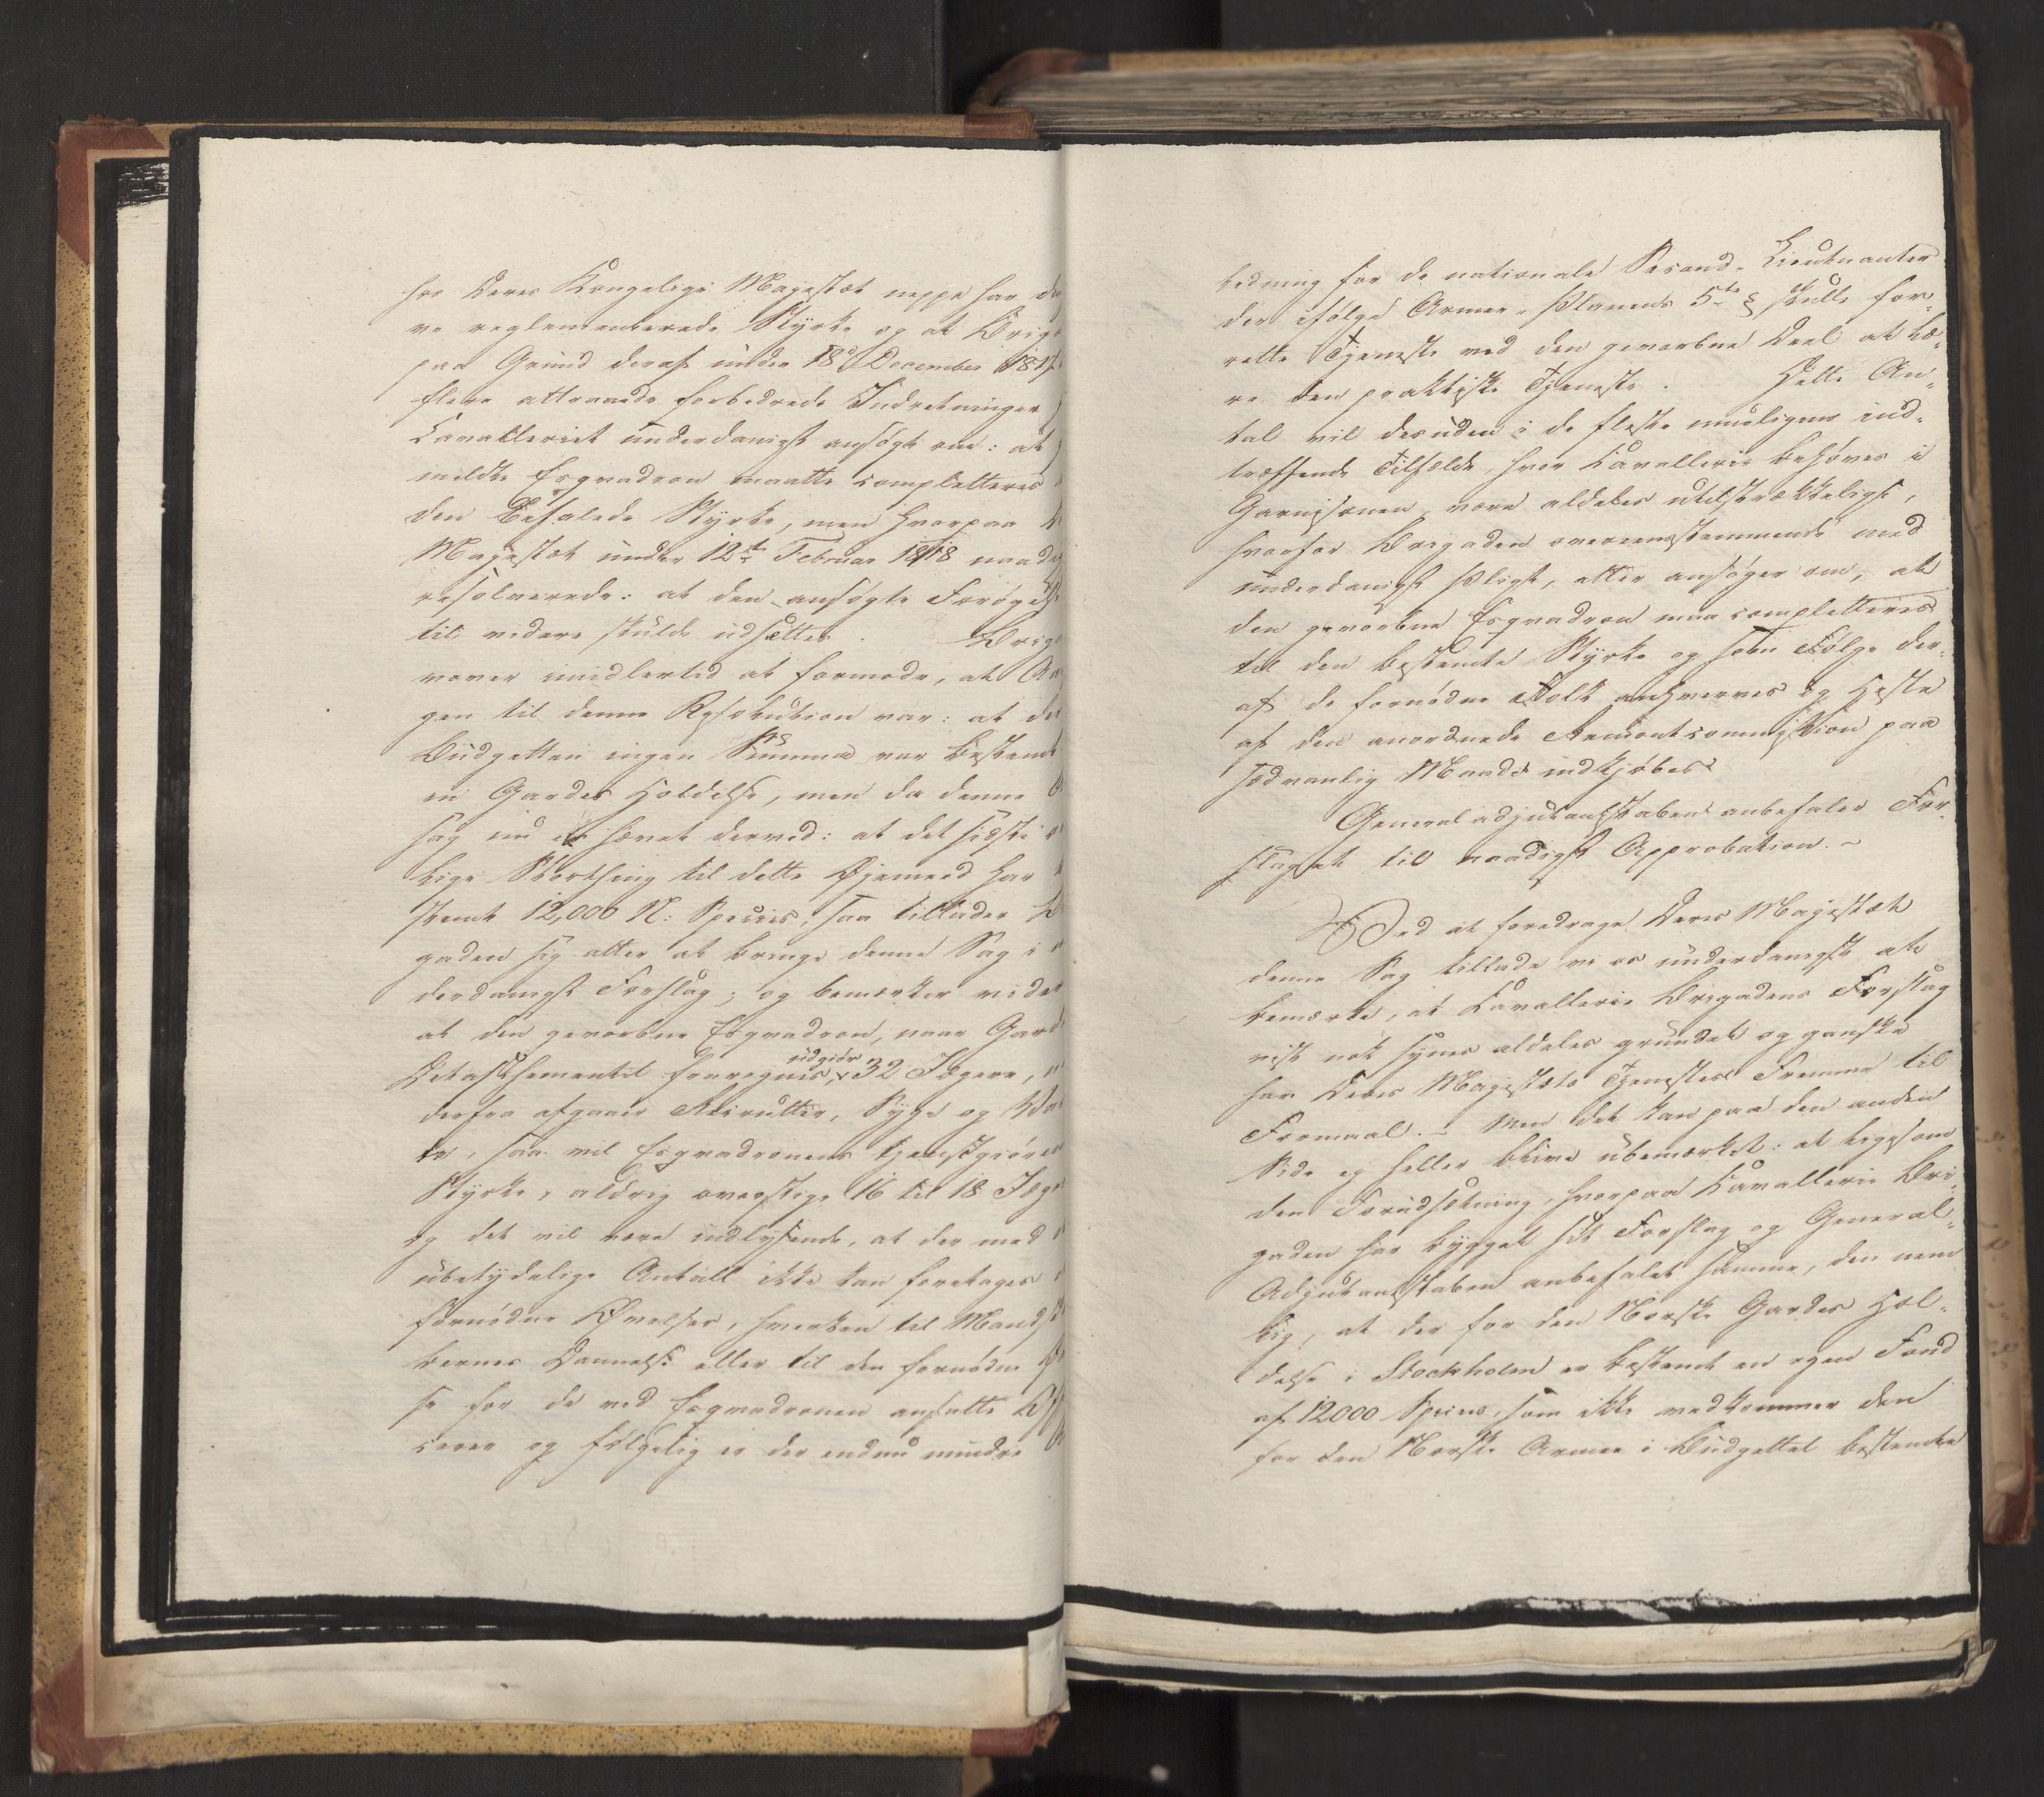 hos Deres Kongelige Majestæt neppe har de
ve reglementerede Styrke og at Briga
paa Grund deraf under 18de December 1817
flere attraaede forbedrede Indretninger
Cavalleriet underdanigst ansøgte om: at
meldte Esqvadron maatte completteres
den befalede Styrke, men hvorpaa
Majestæt under 12te Februar 1818 naad
resolverede: at den ansøgte Forøgelse
til videre skulde udsættes. Briga
vover imidlertid at formode, at Aar
gen til denne Resolution var: at der
Budgettet ingen Summa var bestemt
en Gardes Holdelse, men da denne
sag nu er hævet derved: at det sidste
lige Storthing til dette Øjemeed har
stemt 12,000 N: Species, saa tillader
gaden sig atter at bringe denne Sag i
derdanigst Forslag; og bemærker videre
at den gevorbne Esqvadron, naar Garde
Detaschementet fraregnes, udgiør 32 Jægere,
derfra afgaaer Recrutter, Syge og
te, saa vil Esqvadronens tjenstgiørende
Styrke, aldrig overstige 16 til 18 Jæge
og det vil være indlysende, at der med
ubetydelige Antall ikke kan foretages
fornødne Øvelser, hverken til Mandska
bernes Dannelse eller til den fornødne
se for de ved Esqvadronen ansatte Offi
cerer og følgelig er der endnu mindre
ledning for de nationale Second-Lieutnanter
der ifølge Armee-Planens 5te § skulle for-
rette Tjeneste ved den gevorbne Deel at læ-
re den praktiske Tjeneste. Dette An-
tal vil desuden i de fleste muligens ind-
træffende Tilfælde, hvor Cavallerie behøves i
Garnisonen, være aldeles utilstrækkeligt,
hvorfor Brigaden overeensstemmende med
underdanigst Pligt, atter ansøger om, at
den gevorbne Esqvadron maa completteres
til den bestemte Styrke og som Følge der-
af de fornødne Folk anhverves og Heste
af den anordnede Remontcommission paa
sædvanlig Maade indkjøbes.
Generaladjutantstaben anbefaler For-
slaget til naadigst Approbation. –
Ved at foredrage Deres Majestæt
denne Sag tillade vi os underdanigst at
bemærke, at Cavallerie Brigadens Forslag
vist nok synes aldeles grundet og ganske
har Deres Majestæts Tjenestes Fremme til
Formaal. – Men det kan paa den anden
Side ej heller blive ubemærket: at ligesom
den Forudsætning, hvorpaa Cavallerie Bri-
gaden har bygget sit Forslag og General-
Adjutantstaben anbefalet samme, den nem-
lig, at der for den Norske Gardes Hol-
delse i Stockholm er bestemt en egen Fond
af 12000 Species, som ikke vedkommer den
for den Norske Armee i Budgettet bestemte